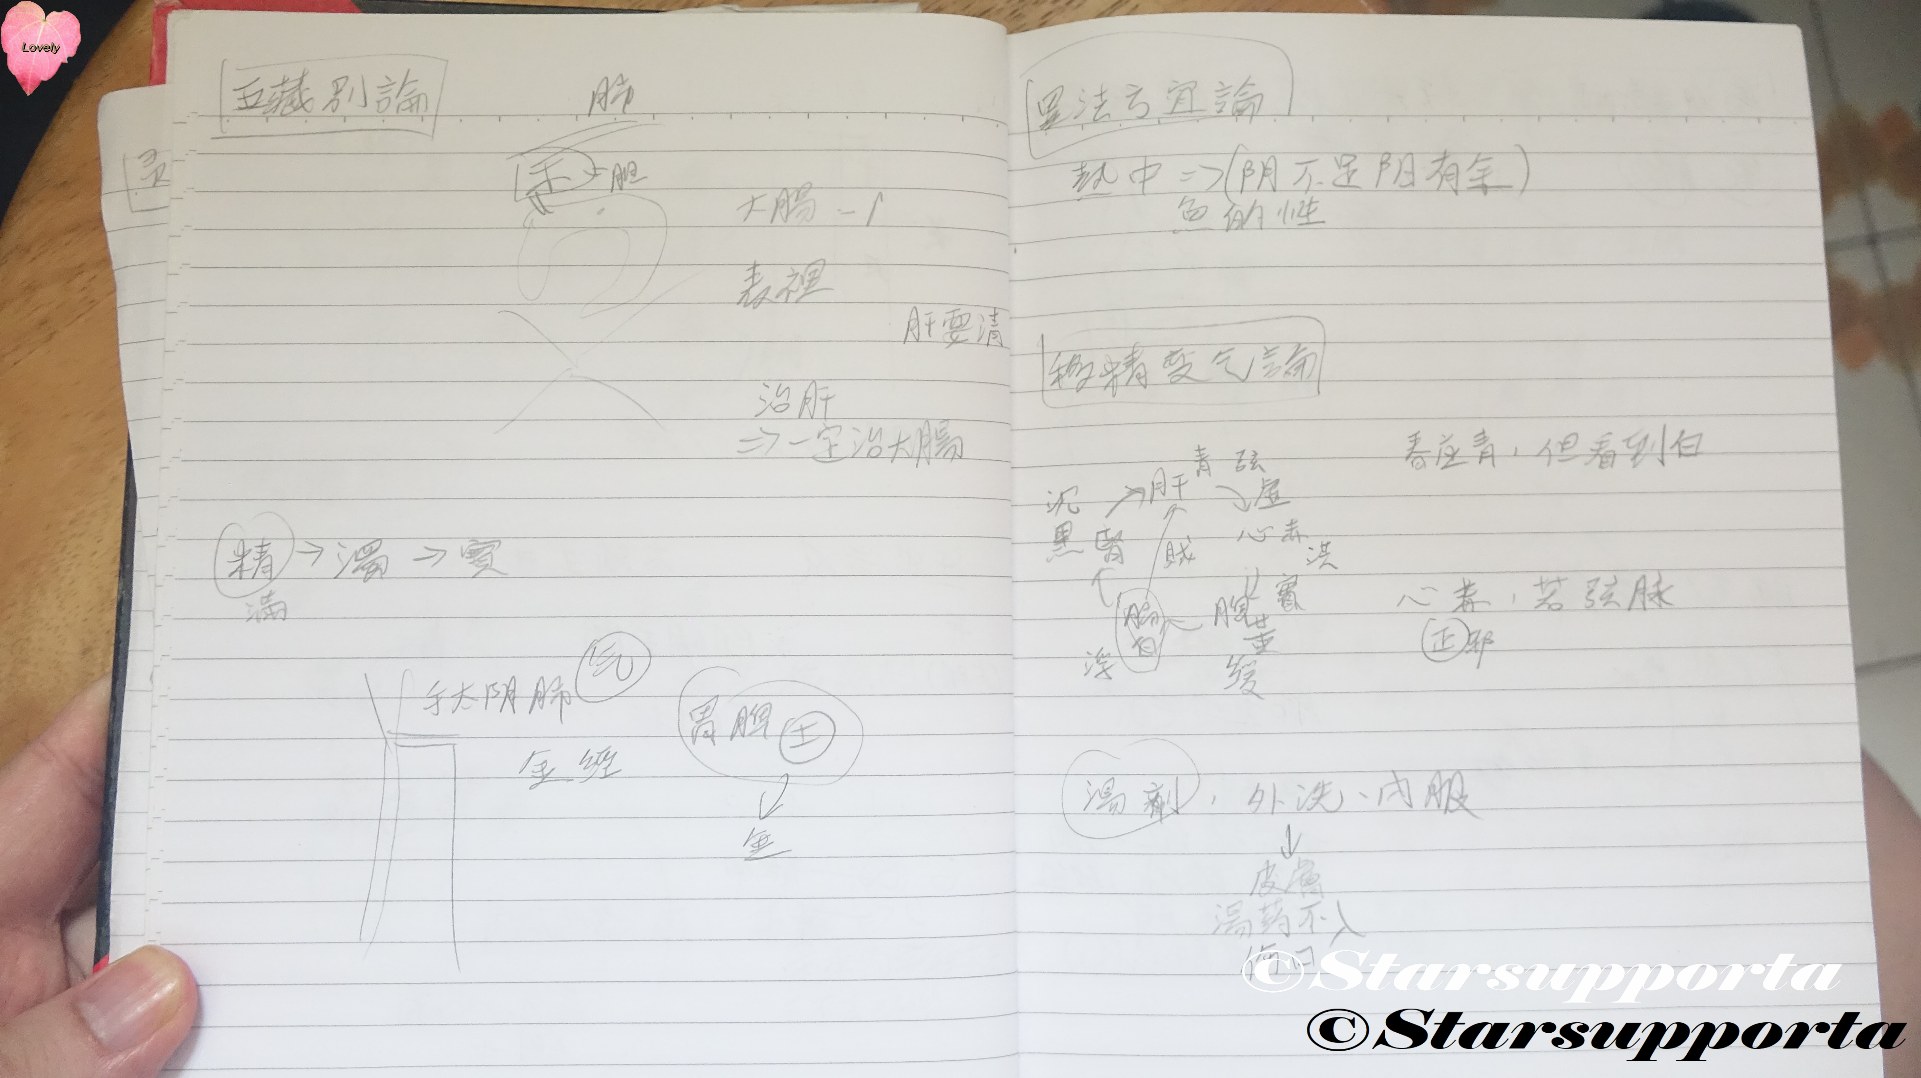 Lovely
五藏別論
肺
胆
大腸
表裡
肝要清
治肝
⇒一定治大腸
精→濁→實
滿
手太阴肺 气
金經
胃脾 土
↓
金
異法方宜論
熱中⇒(阴不足阳有余)
魚的性
移精变气論
春应青,但看到白
青 弦
沉 →肝
虛
黑 腎 賊 心赤 洪
實
肺 脾
白 黄
浮 缓
心赤,若弦脉
正邪
湯劑,外洗、内服
↓
皮膚
湯药不入
傷口
©Starsupporta
©Starsupporta